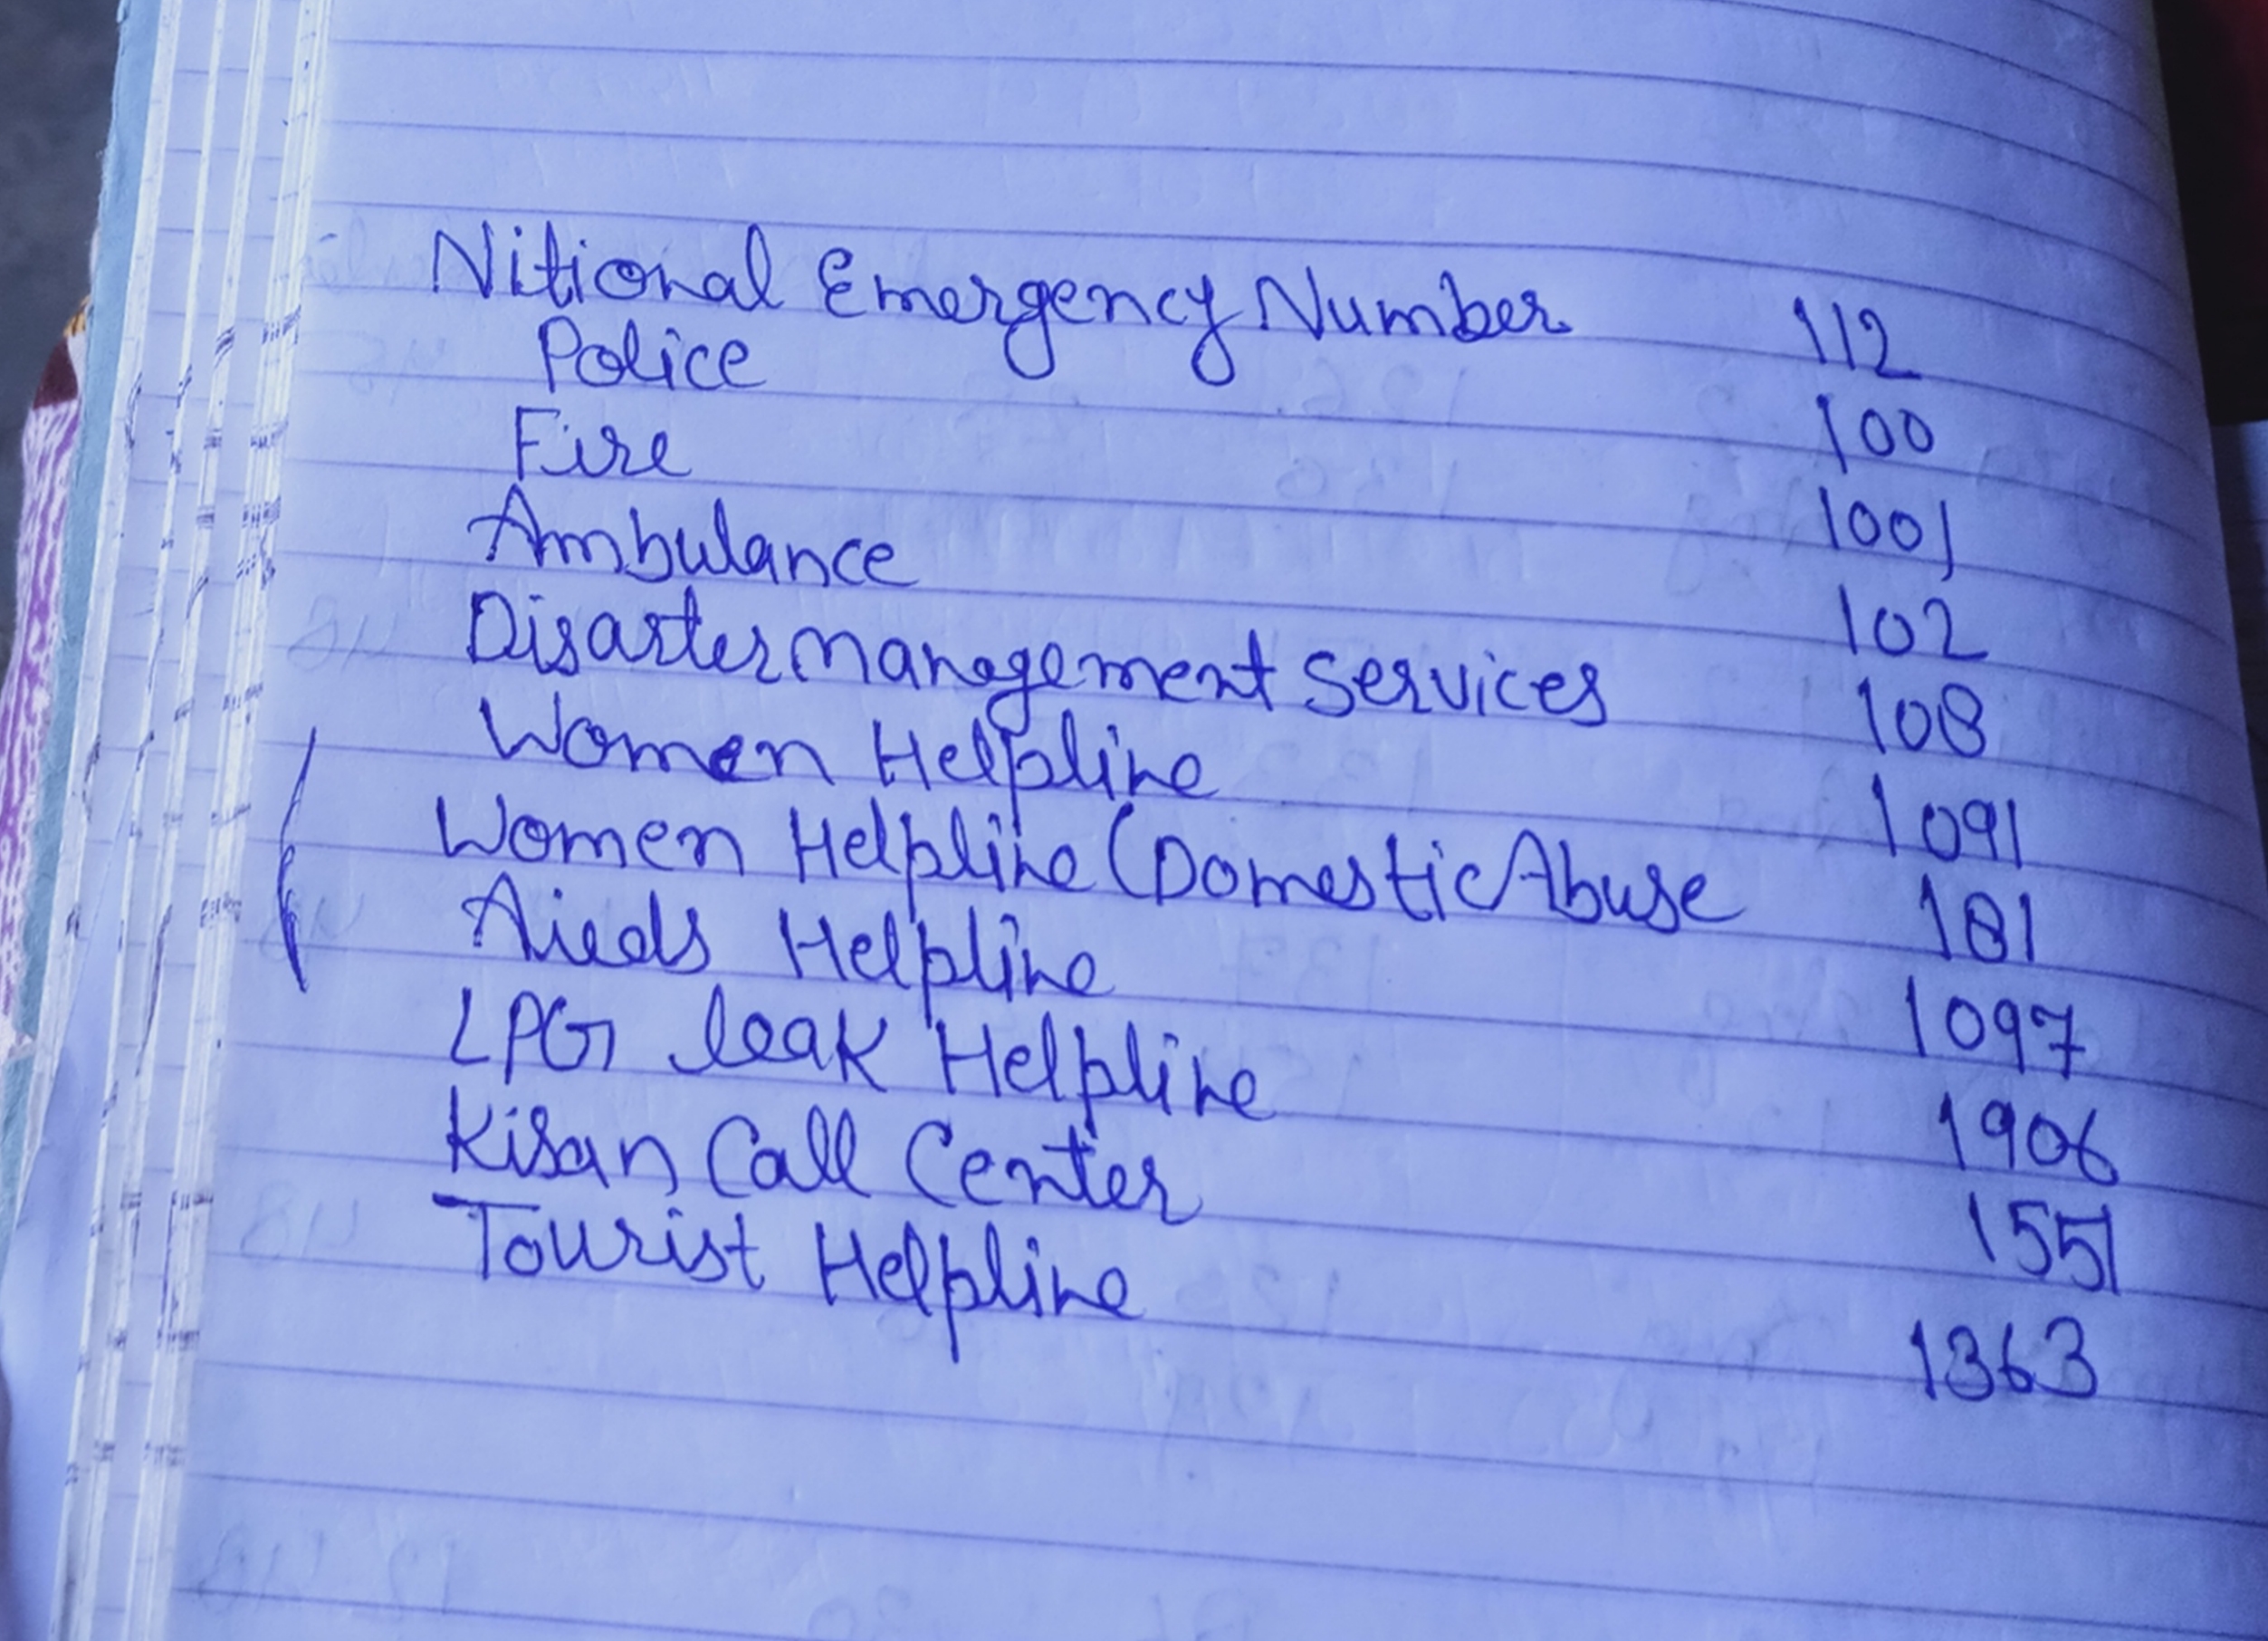 Nitional Emergency Number 112
Police 100
Fire 1001
Ambulance 102
Disaster management Services 108
Women Helpline 1091
Women Helpline (Domestic Abuse 181
Aieds Helpline 1097
LPG leak Helpline 1906
Kisan Call Center 1551
Tourist Helpline 1363